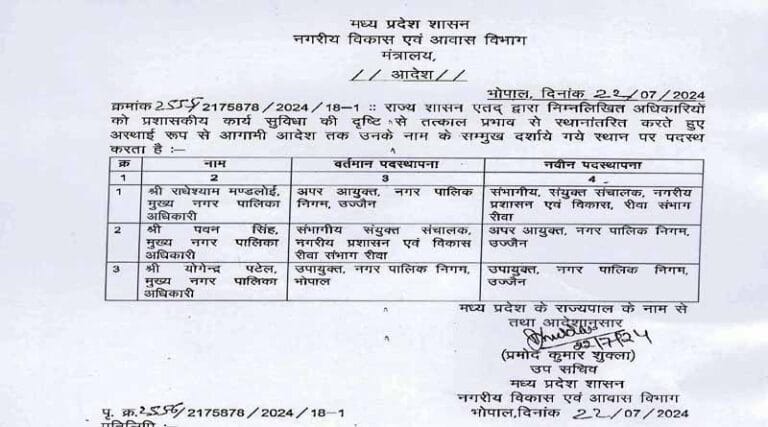 मध्य प्रदेश शासन
नगरीय विकास एवं आवास विभाग
मंत्रालय,
// आदेश //
भोपाल, दिनांक 22/07/2024
क्रमांक 2555/2175878/2024/18-1 :: राज्य शासन एतद् द्वारा निम्नलिखित अधिकारियों
को प्रशासकीय कार्य सुविधा की दृष्टि से तत्काल प्रभाव से स्थानांतरित करते हुए
अस्थाई रूप से आगामी आदेश तक उनके नाम के सम्मुख दर्शाये गये स्थान पर पदस्थ
करता है :—
क्र नाम वर्तमान पदस्थापना नवीन पदस्थापना
1 2 3 4
1 श्री राधेश्याम मण्डलोई, अपर आयुक्त, नगर पालिक संभागीय, संयुक्त संचालक, नगरीय
मुख्य नगर पालिका निगम, उज्जैन प्रशासन एवं विकास, रीवा संभाग
अधिकारी रीवा
2 श्री पवन सिंह, संभागीय संयुक्त संचालक, अपर आयुक्त, नगर पालिक निगम,
मुख्य नगर पालिका नगरीय प्रशासन एवं विकास उज्जैन
अधिकारी रीवा संभाग रीवा
3 श्री योगेन्द्र पटेल, उपायुक्त, नगर पालिक निगम, उपायुक्त, नगर पालिक निगम,
मुख्य नगर पालिका भोपाल उज्जैन
अधिकारी
मध्य प्रदेश के राज्यपाल के नाम से
तथा आदेशानुसार
22/7/24
(प्रमोद कुमार शुक्ला)
उप सचिव
मध्य प्रदेश शासन
नगरीय विकास एवं आवास विभाग
पृ. क्र. 2556/2175878/2024/18-1 भोपाल, दिनांक 22/07/2024